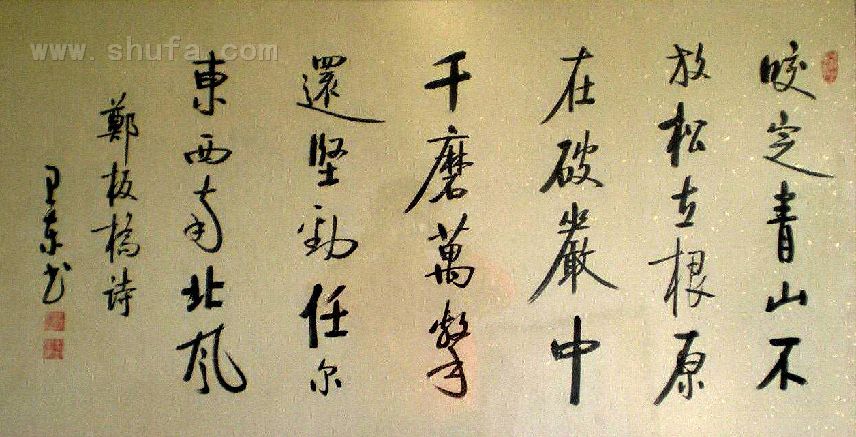 咬定青山不
放松立根原
在破巖中
千磨萬擊
還堅勁任尔
東西南北風
鄭板橋詩
东书
www.shufa.com